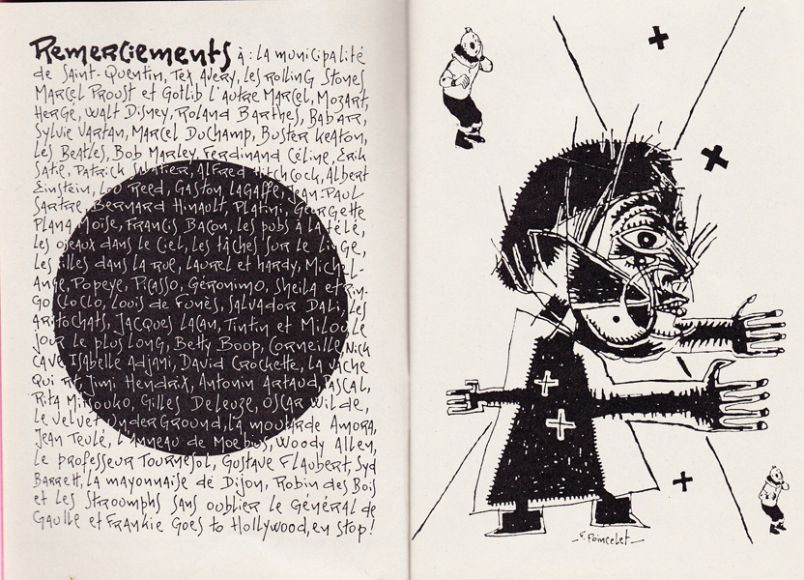 Remerciements à : la municipalité
de Saint-Quentin, Tex Avery, Les Rolling Stones
Marcel Proust et Gotlib l'autre Marcel, Mozart,
Hergé, Walt Disney, Roland Barthes, Babar,
Sylvie Vartan, Marcel Duchamp, Buster Keaton,
Les Beatles, Bob Marley, Ferdinand Céline, Erik
Satie, Patrick Alfred Hitchcock, Albert
Einstein, Lou Reed, Gaston Lagaffe, Jean-Paul
Sartre, Bernard Hinault, Platini, Georgette
Plana, Moïse, Francis Bacon, les pubs à la télé,
les oiseaux dans le ciel, les tâches sur le linge,
les filles dans la rue, Laurel et Hardy, Michel-
Ange, Popeye, Picasso, Géronimo, Sheila et Rin-
go, Cloclo, Louis de Funès, Salvador Dali, Les
Aristochats, Jacques Lacan, Tintin et Milou, le
jour le plus long, Betty Boop, Corneille, Nick
Cave, Isabelle Adjani, David Crockette, la vache
qui rit, Jimi Hendrix, Antonin Artaud, Pascal,
Rita Mitsouko, Gilles Deleuze, Oscar Wilde,
le Velvet Underground, la moutarde Amora,
Jean Teulé, l'anneau de Moebius, Woody Allen,
le professeur Tournesol, Gustave Flaubert, Syd
Barrett, la mayonnaise de Dijon, Robin des Bois
et les Stroumphs sans oublier le Général de
Gaulle et Frankie Goes to Hollywood, en stop !
F. Poincelet